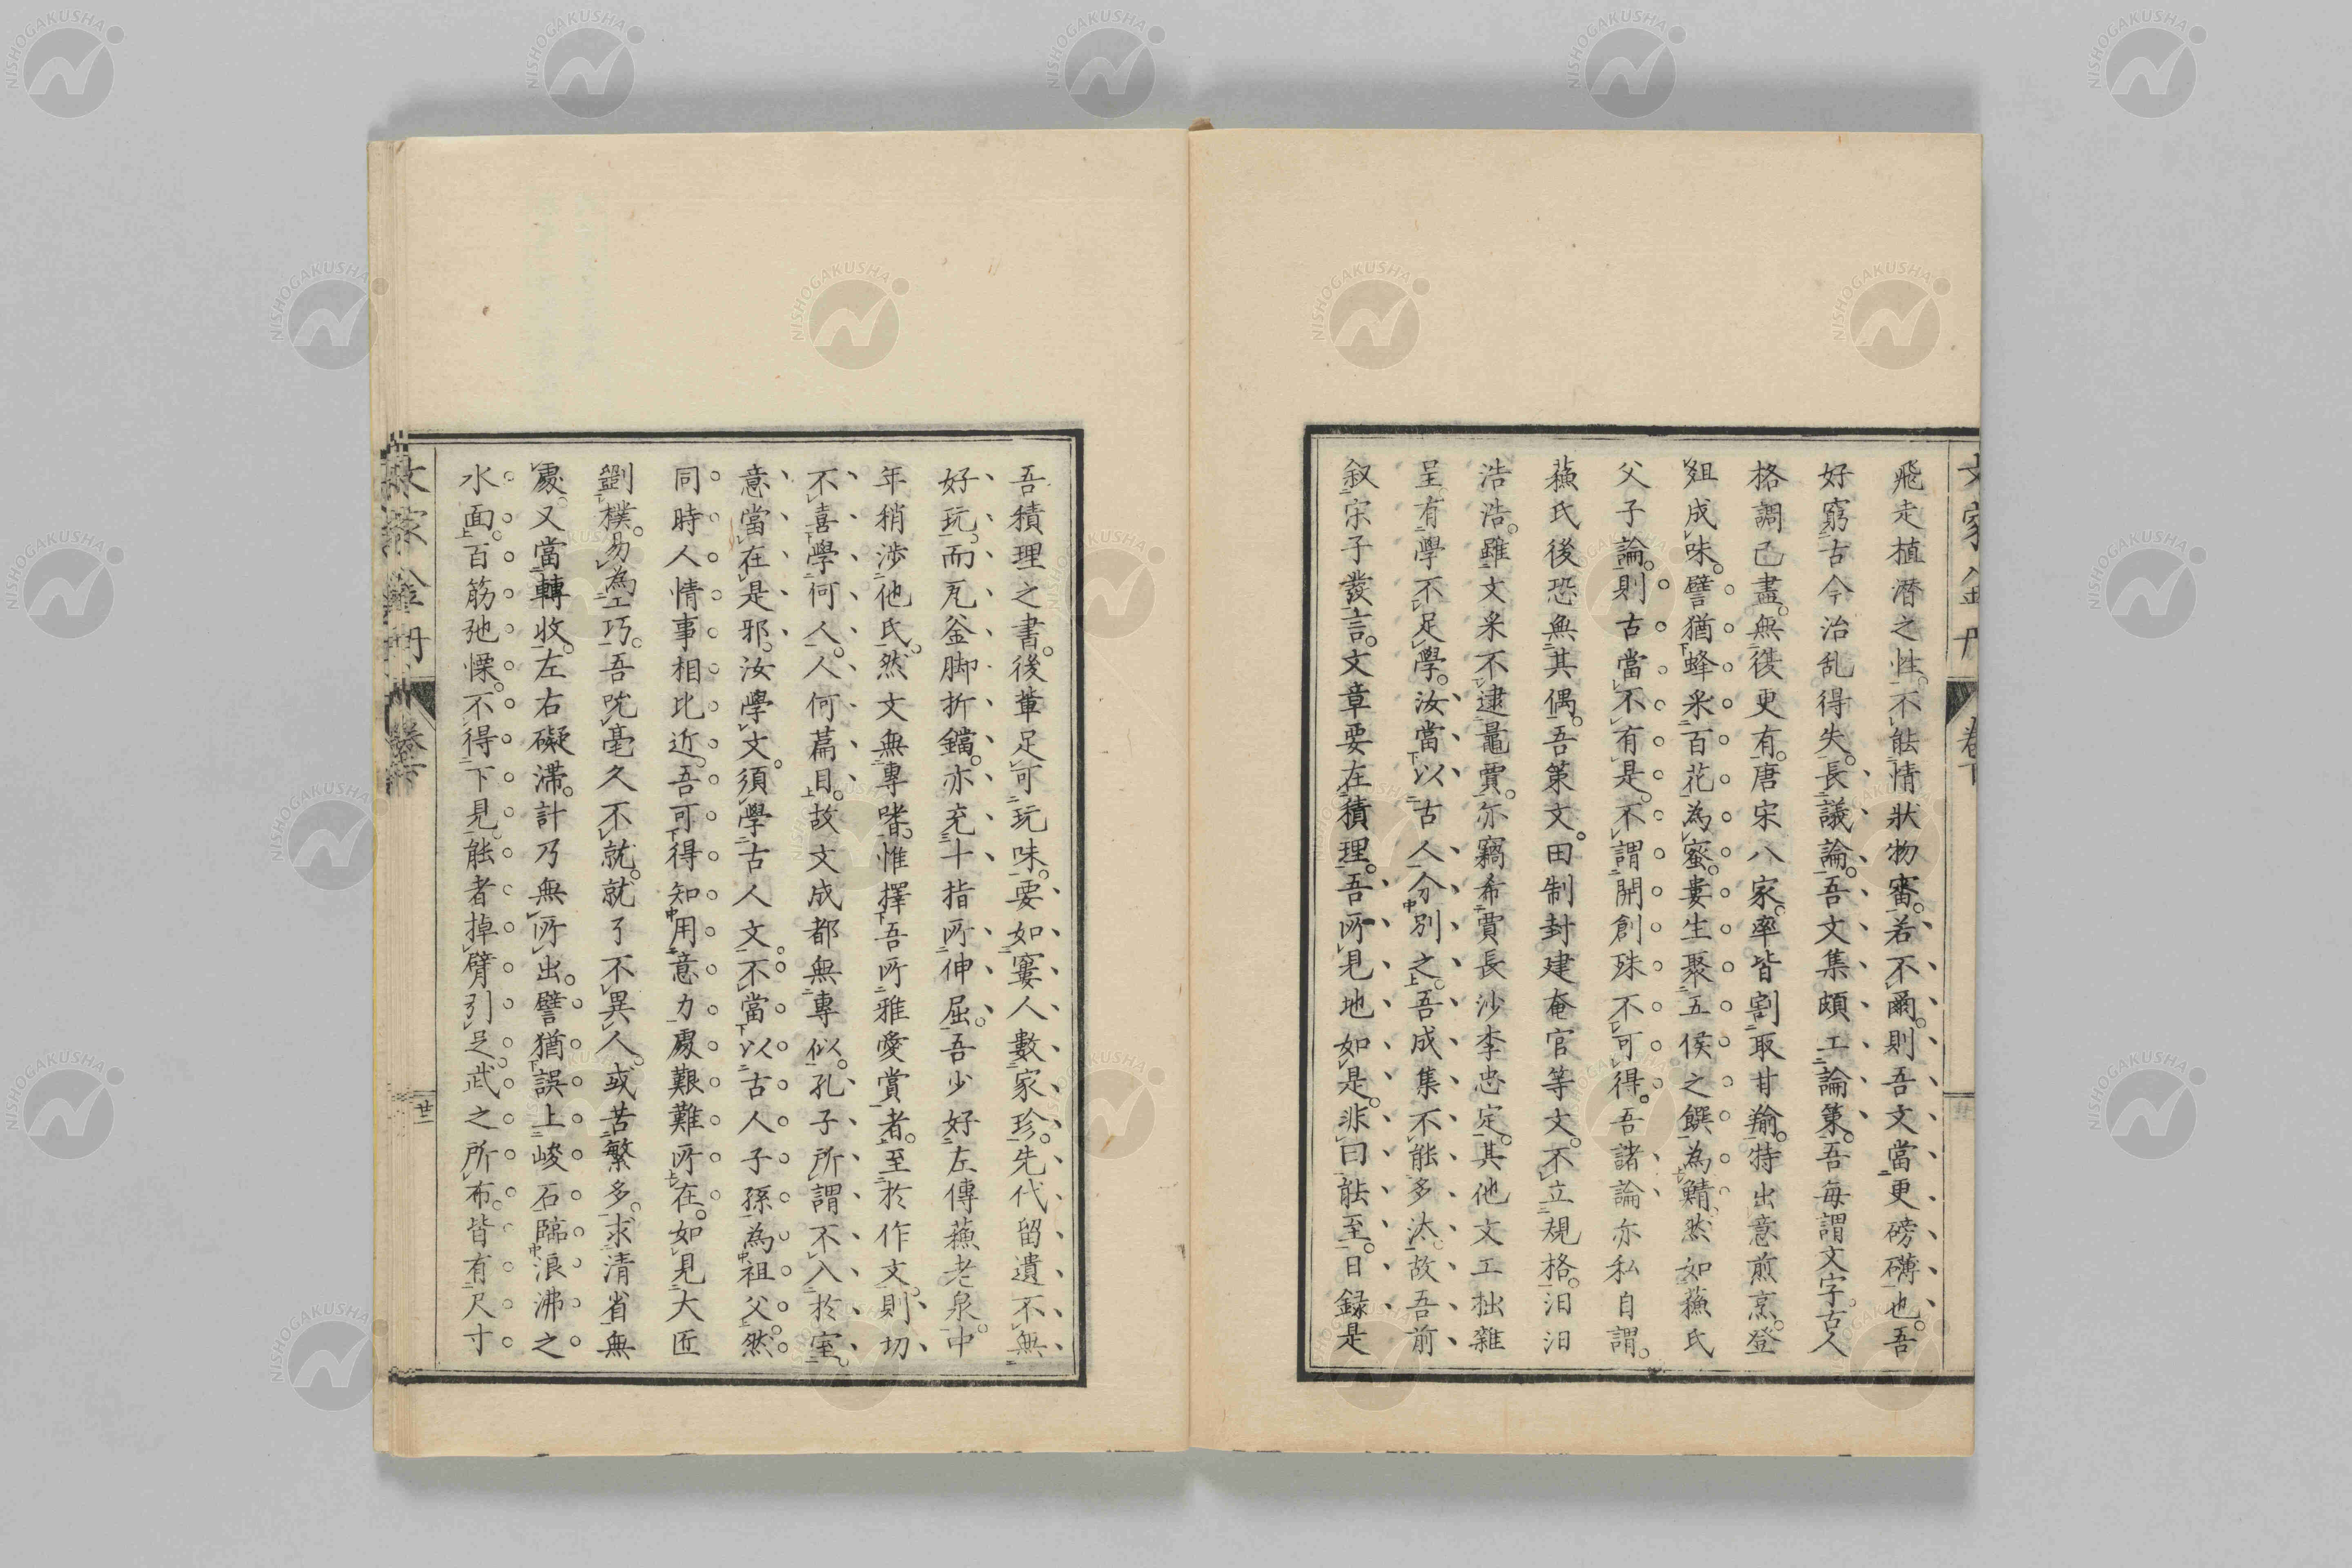 飛走植潜之性。不能情狀物審。若不爾。則吾文當更磅礴也。吾
好窮古今治乱得失。長議論。吾文集頗工論策。吾每謂文字。古人
格調己盡。無復更有。唐宋八家。率皆割取甘腴。特出意煎烹。登
俎成味。譬猶蜂釆百花為蜜。婁生聚五侯之饌為鯖。然如蘓氏
父子論。則古當不有是。不謂開創殊不可得。吾諸論亦私自謂。
蘓氏後恐無其偶。吾策文。田制封建奄官等文。不立規格。汨汨
浩浩。雖文釆不逮鼂賈。亦竊希賈長沙李忠定。其他文工拙雜
呈。有學不足學。汝當以古人分別之。吾成集不能多汰。故吾前
叙宋子發言。文章要在積理。吾所見地如是。非曰能至。日録是
吾積理之書。後輩足可玩味。要如窶人數家珍。先代留遺不無
好玩。而瓦釜脚折鐺。亦充十指所伸屈。吾少好左傳蘓老泉。中
年稍渉他氏。然文無專嗜。惟擇吾所雅愛賞者。至於作文。則切
不喜學何人。人何篇目。故文成都無專似。孔子所謂不入於室。
意當在是邪。汝學文。須學古人文。不當以古人子孫為祖父。然
同時人情事相比近。吾可得知用意力處艱難所在。如見大匠
劉樸。易為工巧。吾吮毫久不就。就了不異人。或苦繁多。求清省無
處。又當轉收。左右礙滞。計乃無所出。譬猶誤上峻石臨浪沸之
水面。百筋弛慄。不得下見。能者掉臂引足。武之所布。皆有尺寸
文家金丹
卷下
廿二
NISHOGAKUSHA